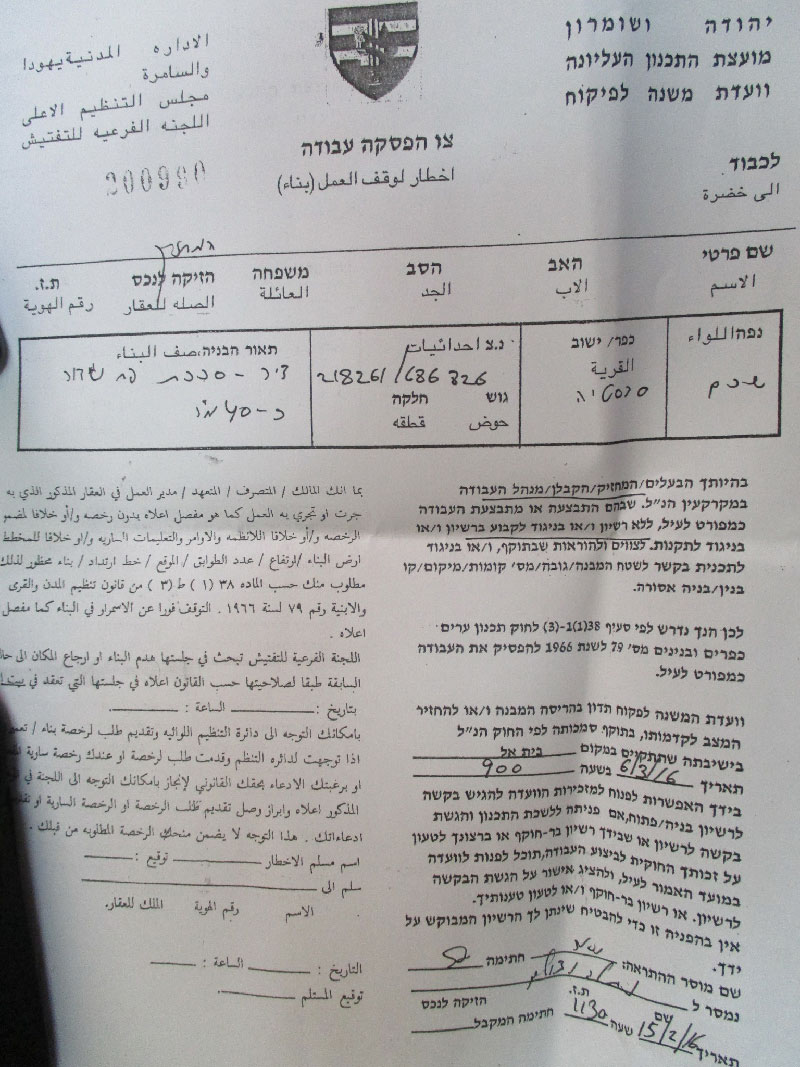 יהודה ושומרון
מועצת התכנון העליונה
וועדת משנה לפיקוח
الاداره المدنية يهودا
والسامرة
مجلس التنظيم الاعلى
اللجنه الفرعيه للتفتيش
צו הפסקה עבודה
اخطار لوقف العمل (بناء)
200990
לכבוד
الى حضرة
שם פרטי האב הסב משפחה הזיקה לנכס ת.ז.
الاسم الاب الجد العائلة الصله للعقار رقم الهوية
נפה اللواء
שכם
כפר/ ישוב
القرية
סבסטיה
נ.צ احداثيات
218261/686326
גוש חלקה
حوض قطقه
תאור הבניה: صف البناء
בהיותך הבעלים/המחזיק/הקבלן/מנהל העבודה
במקרקעין הנ"ל. שבהם התבצעה או מתבצעת העבודה
כמפורט לעיל, ללא רשיון ו/או בניגוד לקבוע ברשיון ו/או
בניגוד לתקנות. לצווים ולהוראות שבתוקף, ו/או בניגוד
לתכנית בקשר לשטח המבנה/גובה/מס' קומות/מיקום/קו
בנין/בניה אסורה.
לכן הנך נדרש לפי סעיף 38(1)-1(3) לחוק תכנון ערים
כפרים ובנינים מס' 79 לשנת 1966 להפסיק את העבודה
כמפורט לעיל.
וועדת המשנה לפקוח תדון בהריסה המבנה ו/או להחזיר
המצב לקדמותו, בתוקף סמכותה לפי החוק הנ"ל
בישיבתה שתתקיים במקום בית אל
תאריך 6/3/16 בשעה 900
בידך האפשרות לפנות למזכירות הוועדה להגיש בקשה
לרשיון בניה/פתוח, אם פניתה ללשכת התכנון והגשת
בקשה לרשיון או שבידך רשיון בר-חוקף או ברצונך לטעון
על זכותך החוקית לביצוע העבודה, תוכל לפנות לוועדה
במועד האמור לעיל, ולהציג אישור על הגשת הבקשה
לרשיון. או רשיון בר-חוקף ו/או לטעון טענותיך.
אין בהפניה זו כדי להבטיח שינתן לך הרשיון המבוקש על
ידך.
שם מוסר ההתראה: חתימה
נמסר ל
שם ת.ז. הזיקה לנכס
תאריך 15/2/16 שעה 1130 חתימה המקבל
بما انك المالك / المتصرف / المتعهد / مدير العمل في العقار المذكور الذي به
جرت او تجري به العمل كما هو مفصل اعلاه بدون رخصه و/أو خلافا لمضمو
الرخصه و/أو خلافا اللانظمه والاوامر والتعليمات الساريه و/او خلافا للمخطط
ارض البناء / لرتفاع / عدد الطوابق / الموقع / خط ارتداد / بناء محظور لذلك
مطلوب منك حسب الماده ٣٨ (١) ط (٣) من قانون تنظيم المدن والقرى
والابنية رقم ٧٩ لسنة ١٩٦٦ . التوقف فورا عن الاسمرار في البناء كما مفصل
اعلاه .
اللجنة الفرعية للتفتيش تبحث في جلستها هدم البناء او ارجاع المكان الى حال
السابقة طبقا لصلاحيتها حسب القانون اعلاه في جلستها التي تعقد في
بتاريخ : الساعة :
بامكانك التوجه الى دائرة التنظيم اللوائيه وتقديم طلب لرخصة بناء /
اذا توجهت لدائره التنظم وقدمت طلب لرخصة او عندك رخصة سارية
او برغبتك الادعاء بحقك القانوني لإنجاز بامكانك التوجه الى اللجنة في
المذكور اعلاه وابراز وصل تقديم طلب الرخصة او الرخصة السارية او
ادعاءاتك . هذا التوجه لا يضمن منحك الرخصة المطلوبه من قبلك .
اسم مسلم الاخطار توقيع :
سلم الى
الاسم رقم الهوية الملك للعقار.
التاريخ : الساعة :
توقيع المستلم